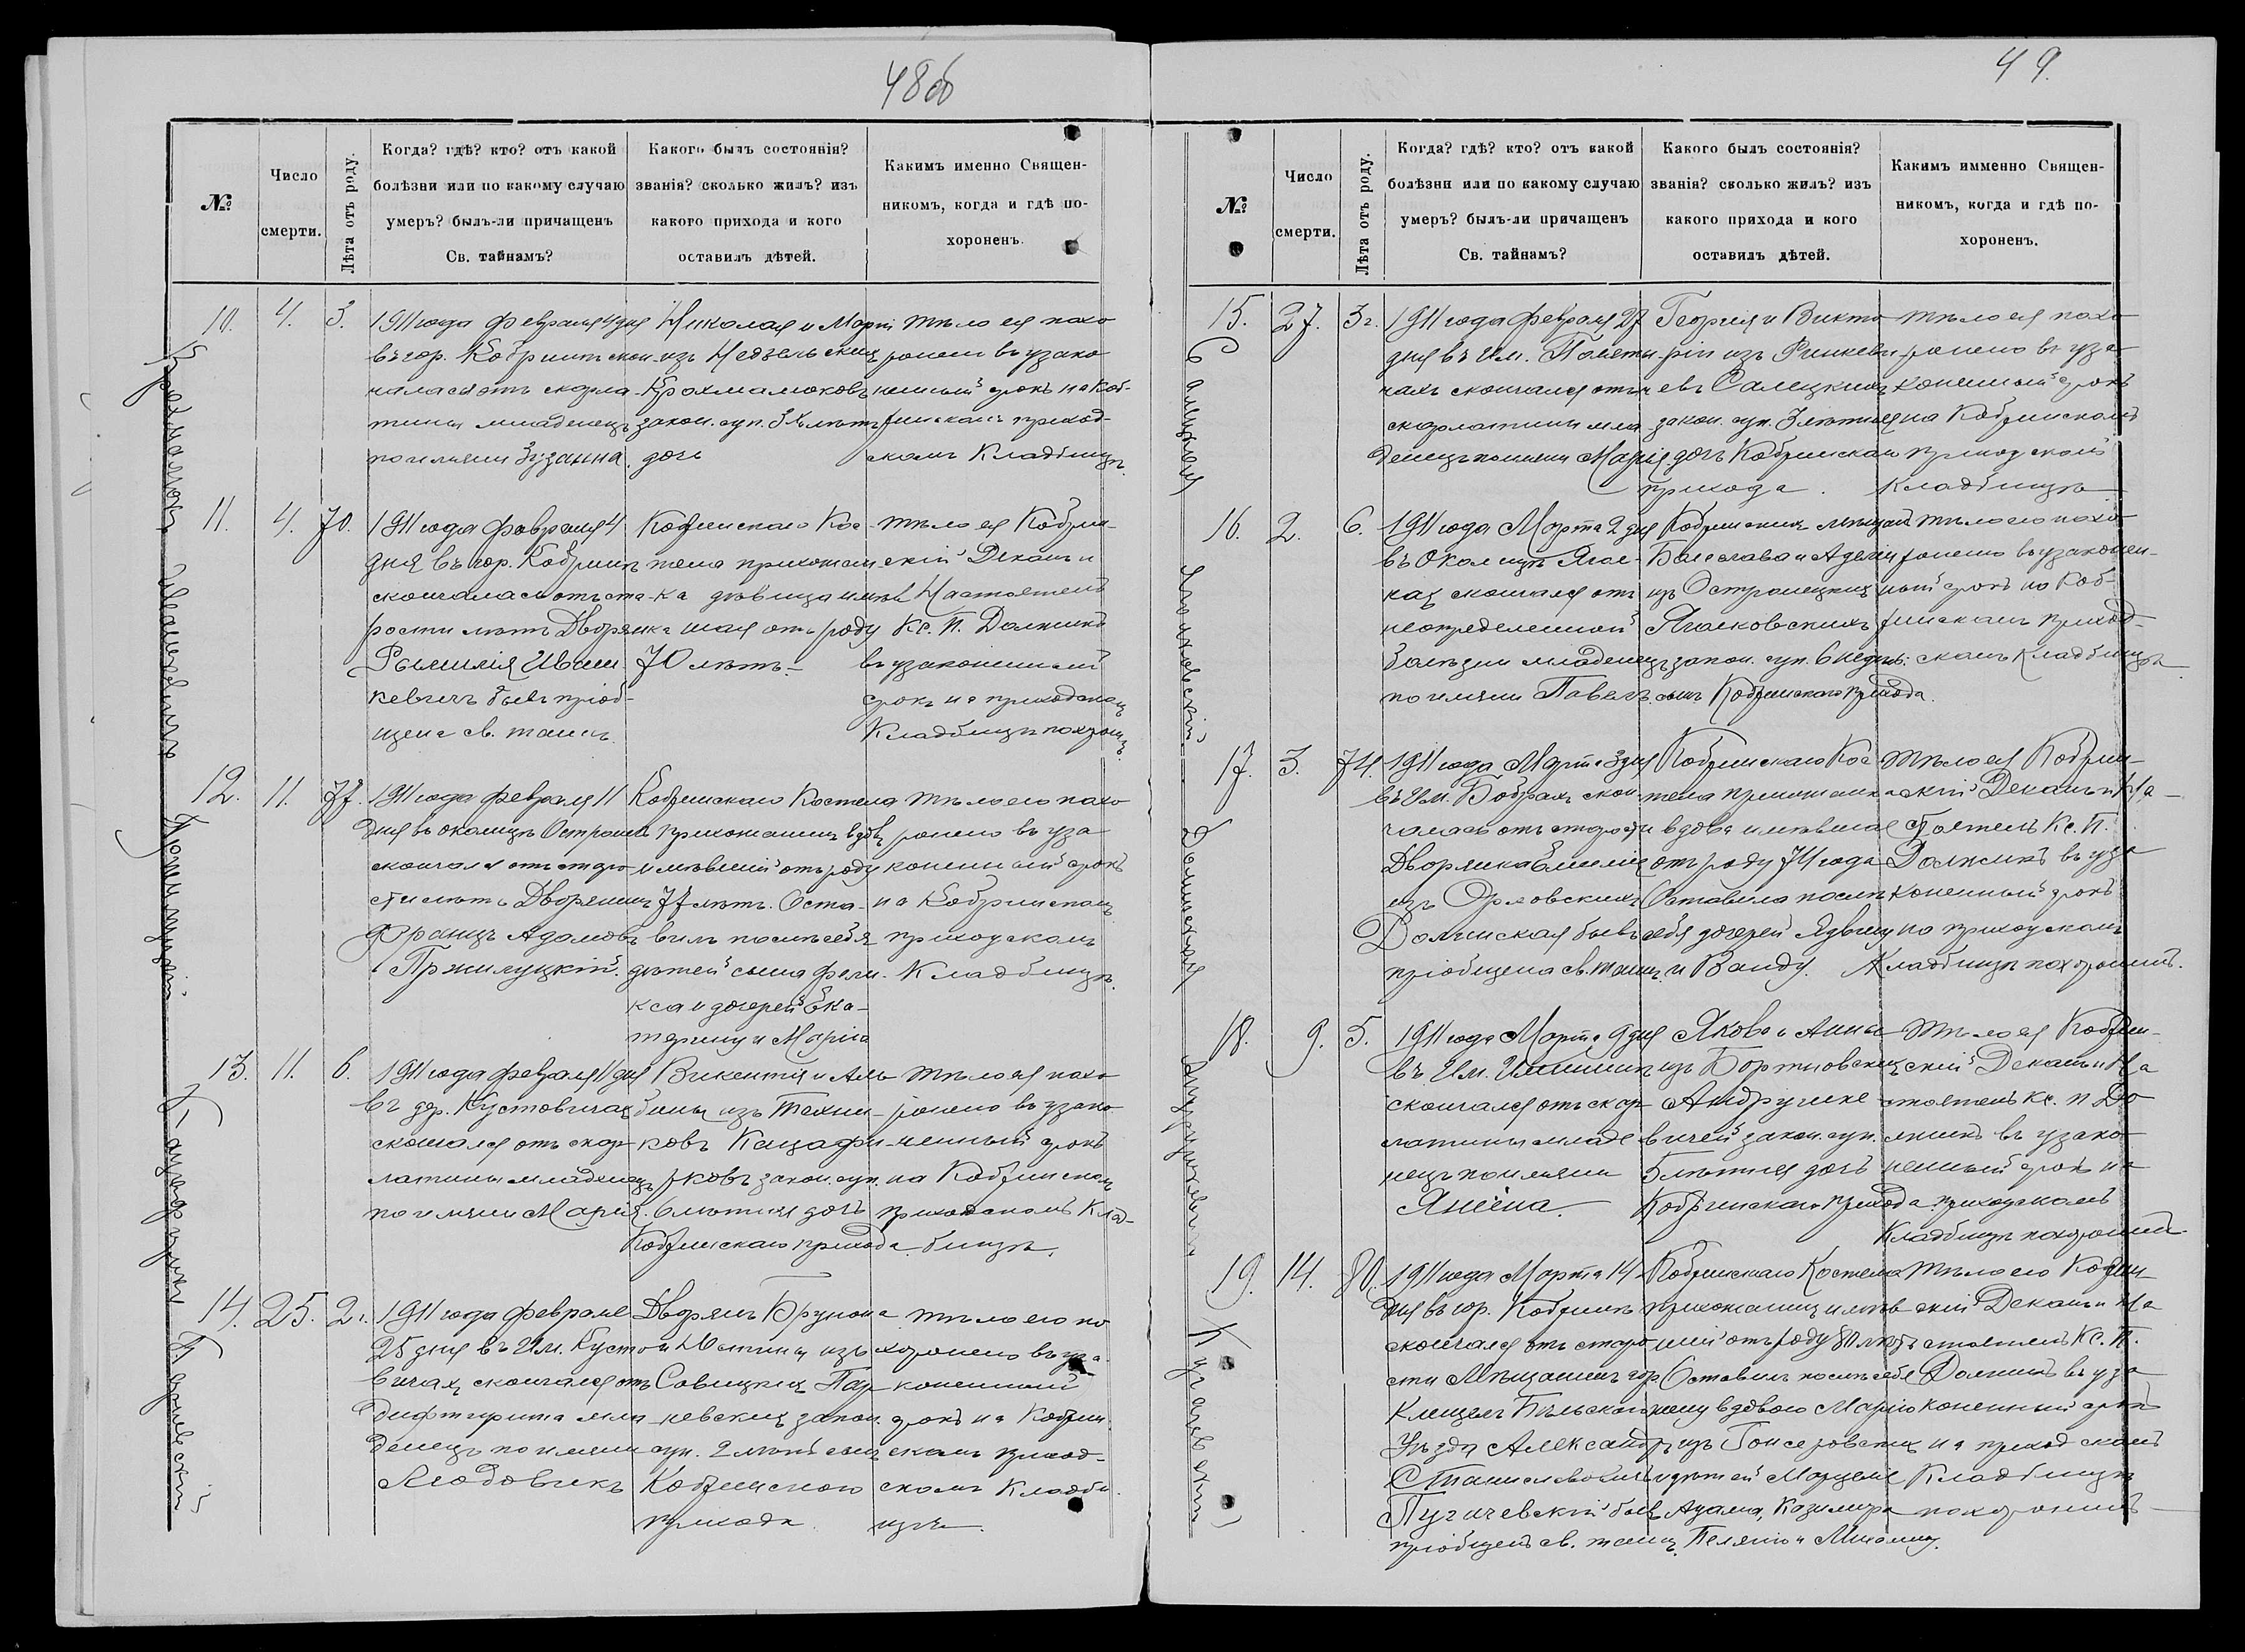 48об
№
Число
смерти.
Лѣта отъ роду.
Когда? гдѣ? кто? отъ какой
болѣзни или по какому случаю
умеръ? былъ-ли причащенъ
Св. тайнамъ?
Какого былъ состоянія?
званія? сколько жилъ? изъ
какого прихода и кого
оставилъ дѣтей.
Какимъ именно Священ-
никомъ, когда и гдѣ по-
хороненъ.
10.
4.
3.
1911 года февраля 4 дня
въ гор. Кобринѣ скон-
чалась отъ скарла-
тины младенецъ
по имени Зузанна
Николая и Маріи
изъ Недзельскихъ
Крохмалюковъ
закон. суп. 3хъ лѣтъ
дочь
тѣло ея похо
ронено въ узако
ненный срокъ на Коб-
ринскомъ приход-
скомъ Кладбищѣ.
11.
4.
70.
1911 года февраля 4
дня въ гор. Кобринѣ
скончалась отъ ста-
рости лѣтъ Дворянка
кевичъ бывъ пріоб-
щена св. таинъ
Кобринскаго Кос-
тела прихожан-
ка дѣвица имѣв
шая отъ роду
70 лѣтъ.
тѣло ея Кобрин-
скій Деканъ и
Настоятель
Кс. П. Должикъ
въ узаконенный
срокъ на приходскомъ
Кладбищѣ похорон.
12.
11.
77.
1911 года февраля 11
дня въ околицѣ
скончался отъ старо
сти лѣтъ Дворянинъ
Францъ Адамовъ
Пржилуцкій.
Кобринскаго Костела
прихожанинъ вдов.
имѣвшій отъ роду
77 лѣтъ. Оста-
вилъ послѣ себя
дѣтей сына Фели-
кса и дочерей Ека-
терину и Марію
тѣло его похо
ронено въ уза
коненный срокъ
на Кобринскомъ
приходскомъ
Кладбищѣ.
13.
11.
6.
1911 года февраля 11 дня
въ дер. Кустовичахъ
скончался отъ скар-
латины младенецъ
по имени Марія.
Викентія и Аль
бины изъ
ковъ Кацафи-
рковъ закон. суп.
6 лѣтняя дочь
Кобринскаго прихода
тѣло ея похо
ронено въ узако
ненный срокъ
на Кобринскомъ
приходскомъ Клад-
бищѣ.
14.
25.
2.
1911 года февраля
25 дня въ Им. Кусто
вичахъ скончался отъ
дифтерита мла
денецъ по имени
Людовикъ
Дворянъ Брунона
и Юстины изъ
Савицкихъ
невскихъ закон.
суп. 2 лѣтъ сынъ
Кобринского
прихода
тѣло его по
хоронено въ уза-
коненный
срокъ на Кобрин.
скомъ приход-
скомъ Кладби.
щѣ.
49.
№
Число
смерти.
Лѣта отъ роду.
Когда? гдѣ? кто? отъ какой
болѣзни или по какому случаю
умеръ? былъ-ли причащенъ
Св. тайнамъ?
Какого былъ состоянія?
званія? сколько жилъ? изъ
какого прихода и кого
оставилъ дѣтей.
Какимъ имменно Священ-
никомъ, когда и гдѣ по-
хороненъ.
15.
27.
3 г.
1911 года февраля 27
дня въ Им.
чахъ скончался отъ
скарлатины мла
денецъ по имени Марія
Георгія и Викто
ріи изъ Ринкеви
чевъ Салецкихъ
закон. суп. 3 лѣтняя
дочь Кобринскаго
прихода.
тѣло ея похо
ронено въ уза-
коненный срокъ
на Кобринскомъ
приходскомъ
Кладбищѣ
16.
2.
6.
1911 года Марта 2 дня
въ Околицѣ Ягел-
кахъ скончался отъ
неопределенной
болѣзни младенецъ
по имени Павелъ
Кобринскихъ мѣщанъ
Болеслава и Аделіи
изъ Островецкихъ
Ягелковскихъ
закон. суп. 6 недѣль
сынъ Кобринскаго прихода.
тѣло его похо
ронено въ узаконен-
ный срокъ на Коб-
ринскомъ приход-
скомъ Кладбищѣ
17.
3.
74.
1911 года Марта 3 дня
въ Им. Бобрахъ скон-
чалась отъ старости
Дворянка Эмилія
изъ Орловскихъ
Долинская бывъ
пріобщена св. таинъ.
Кобринскаго Кос
тела прихожанка
вдова имѣвшая
отъ роду 74 года
Оставила послѣ
себя дочерей Ядвигу
и Ванду.
тѣло ея Кобрин-
скій Деканъ и На-
стоятель Кс. П.
Должикъ въ уза
коненный срокъ
на приходскомъ
Кладбищѣ похоронилъ.
18.
9.
5.
1911 года Марта 9 дня
въ Им.
скончался отъ скар
латины младе
нецъ по имени
Янина.
Якова и Анны
изъ Бортновскихъ
Андрушке
вичей закон. суп.
5 лѣтняя дочь
Кобринскаго прихода
тѣло ея Кобрин-
скій Деканъ и На
стоятель Кс. П. До
лжикъ въ узако
ненный срокъ на
приходскомъ
Кладбищѣ похоронилъ
19.
14.
80.
1911 года Марта 14
дня въ гор. Кобринѣ
скончался отъ старо
сти Мѣщанинъ гор
Клещель Бѣльскаго
Уѣзда Александръ
Станиславовичъ
Пугачевскій бывъ
пріобщенъ св. таинъ.
Кобринскаго Костела
прихожанинъ имѣв
шій отъ роду 80 лѣтъ
Оставилъ послѣ себя
жену вдовою Марію
изъ Гонсеровскихъ
и дѣтей Марцелія
Адама, Казимира
Пелагію и Михалину.
тѣло его Кобрин-
скій Деканъ и На
стоятель Кс. П.
Должикъ въ уза
коненный срокъ
на приходскомъ
Кладбищѣ
похоронилъ